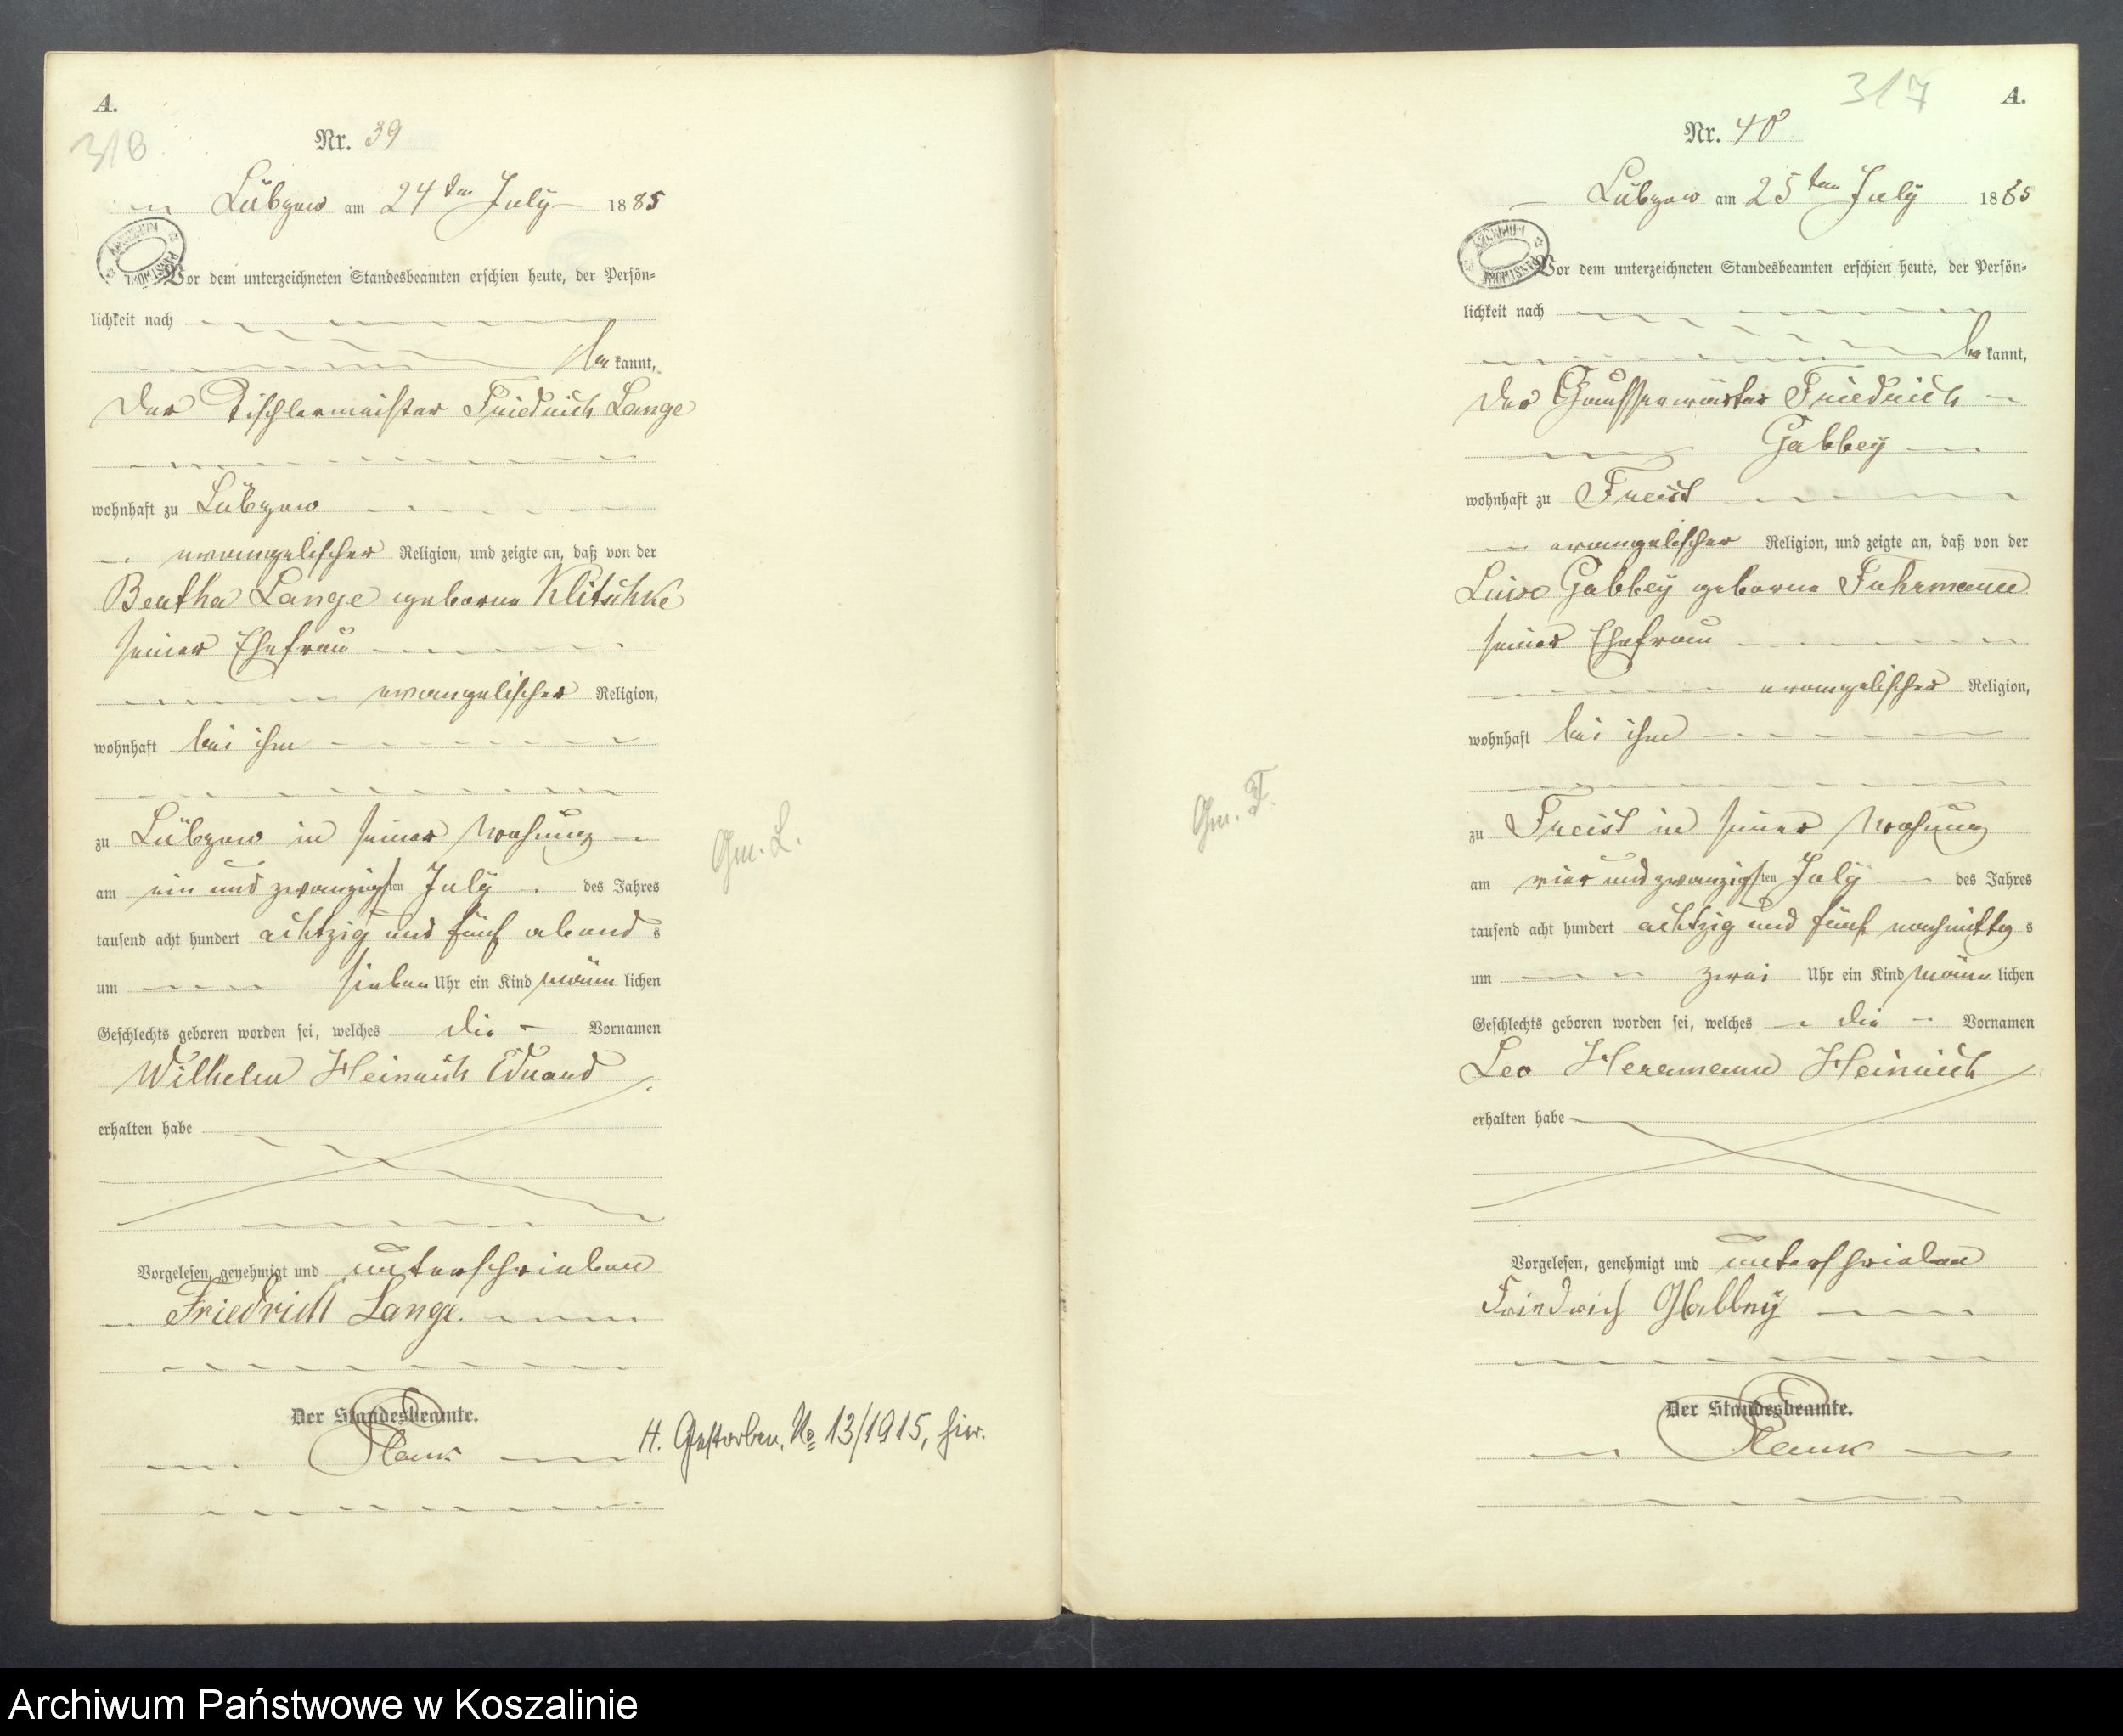 A.
316
Nr. 39
Lübzow am 24ten July 1885
Vor dem unterzeichneten Standesbeamten erschien heute, der Persön=
lichkeit nach
be kannt,
der Tischlermeister Friedrich Lange
wohnhaft zu Lübzow
evangelischer Religion, und zeigte an, daß von der
Bertha Lange geborne Klitschke
seiner Ehefrau
evangelischer Religion,
wohnhaft bei ihm
zu Lübzow in seiner Wohnung
am ein und zwanzigsten July des Jahres
tausend acht hundert achtzig und fünf abend s
um sieben Uhr ein Kind männ lichen
Geschlechts geboren worden sei, welches die Vornamen
Wilhelm Heinrich Eduard
erhalten habe
Vorgelesen, genehmigt und unterschrieben
Friedrich Lange.
Der Standesbeamte.
Gm. L.
H. Gestorben, No 13/1915, hier.
317
A.
Nr. 40
Lübzow am 25ten July 1885
ARCHIWUM
Vor dem unterzeichneten Standesbeamten erschien heute, der Persön=
lichkeit nach
be kannt,
der Chausseewärter Friedrich
Gabbey
wohnhaft zu Freist
evangelischer Religion, und zeigte an, daß von der
Luise Gabbey geborne Fuhrmann
seiner Ehefrau
evangelischer Religion,
wohnhaft bei ihm
zu Freist in seiner Wohnung
am vier und zwanzigsten July des Jahres
tausend acht hundert achtzig und fünf nachmittag s
um zwei Uhr ein Kind männ lichen
Geschlechts geboren worden sei, welches die Vornamen
Leo Herrmann Heinrich
erhalten habe
Vorgelesen, genehmigt und unterschrieben
Friedrich Gabbey
Der Standesbeamte.
Gm. F.
Archiwum Państwowe w Koszalinie